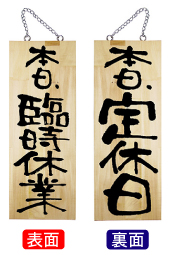 本日、臨時休業
本日、定休日
表面
裏面